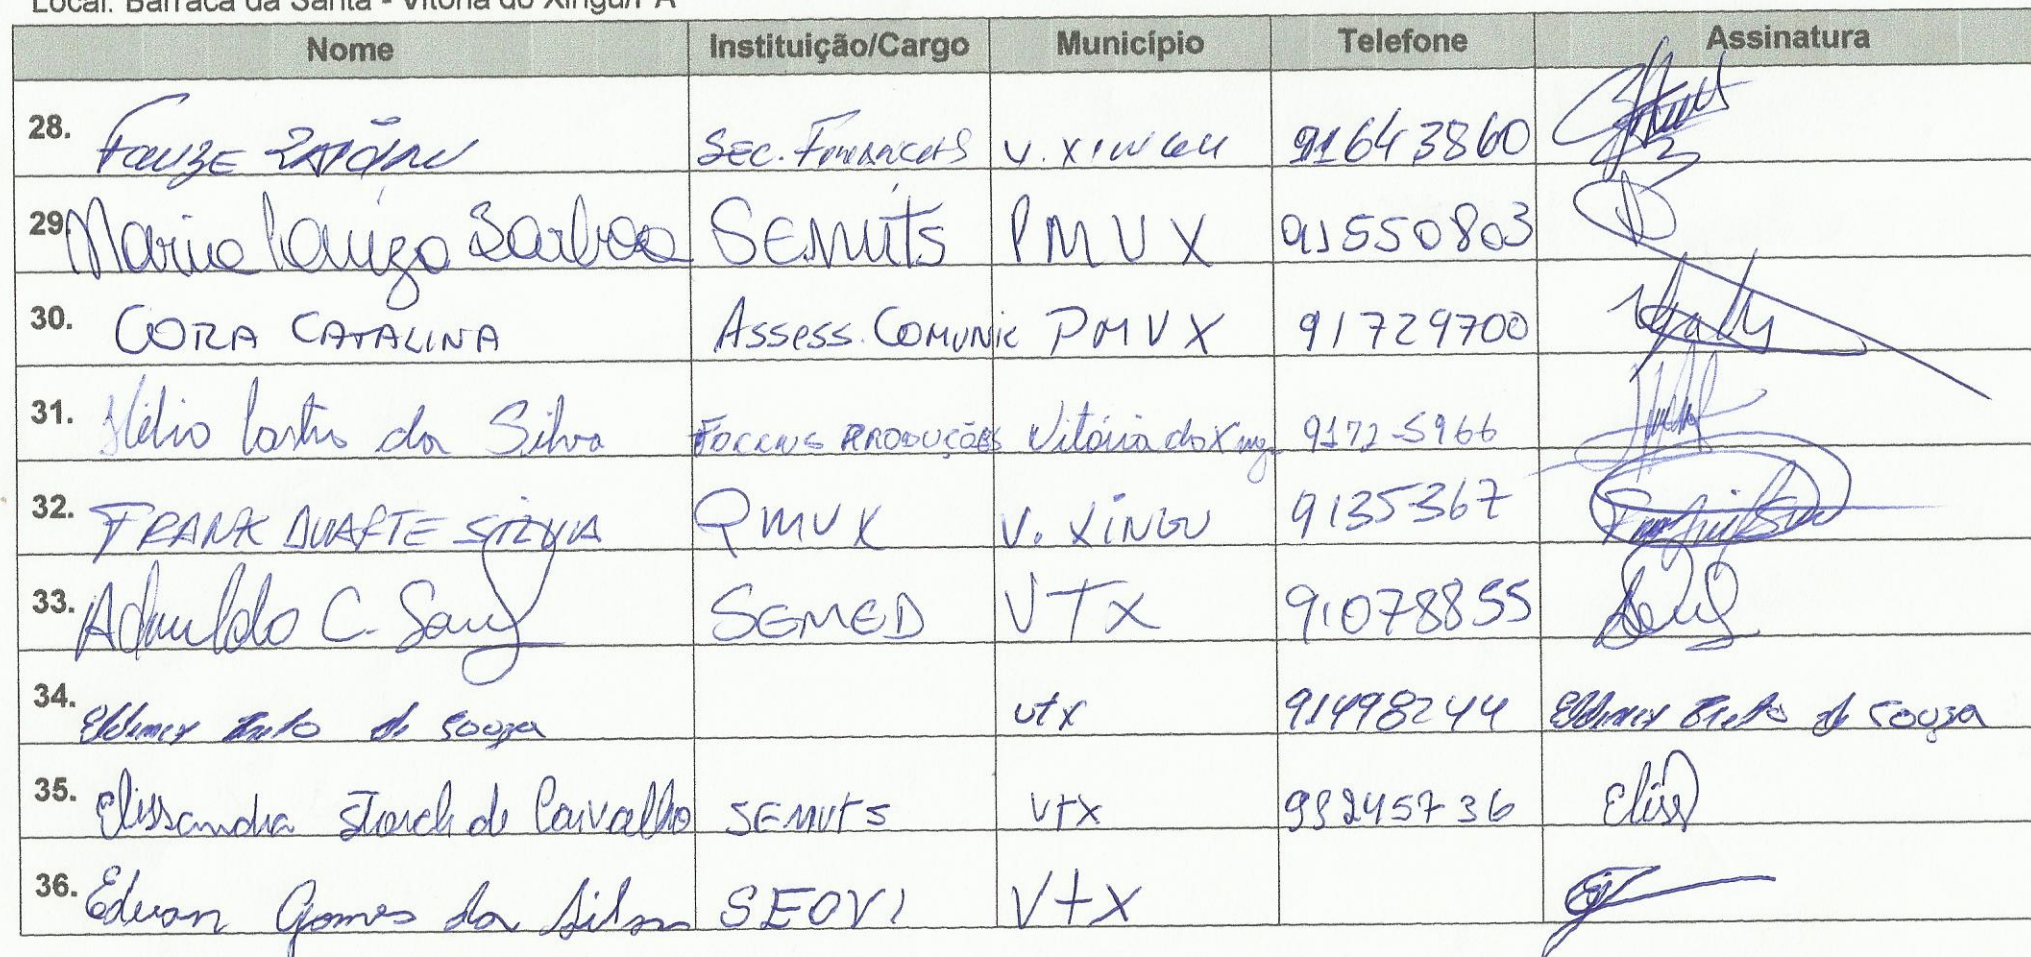 Local: Barraca da Santa - Vitória do Xingu/PA
Nome Instituição/Cargo Município Telefone Assinatura
28. Fauze Sec. Financas V. Xingu 91643860
29. Maria Lauiza Barbosa SEMUTS PMVX 91550803
30. CORA CATALINA Assess. Comunic PMVX 91729700
31. Hélio Castro da Silva PRODUÇÕES Vitória do Xing. 9172-5966
32. FRANK DUARTE SILVA PMVX V. XINGU 9135367
33. C. SEMED VTX 91078855
34. de Souza vtx 91498244 de Souza
35. Elissandra Storch de Carvalho SEMUTS VTX Eliss
36. Edvan Gomes da Silva SEOVI VtX